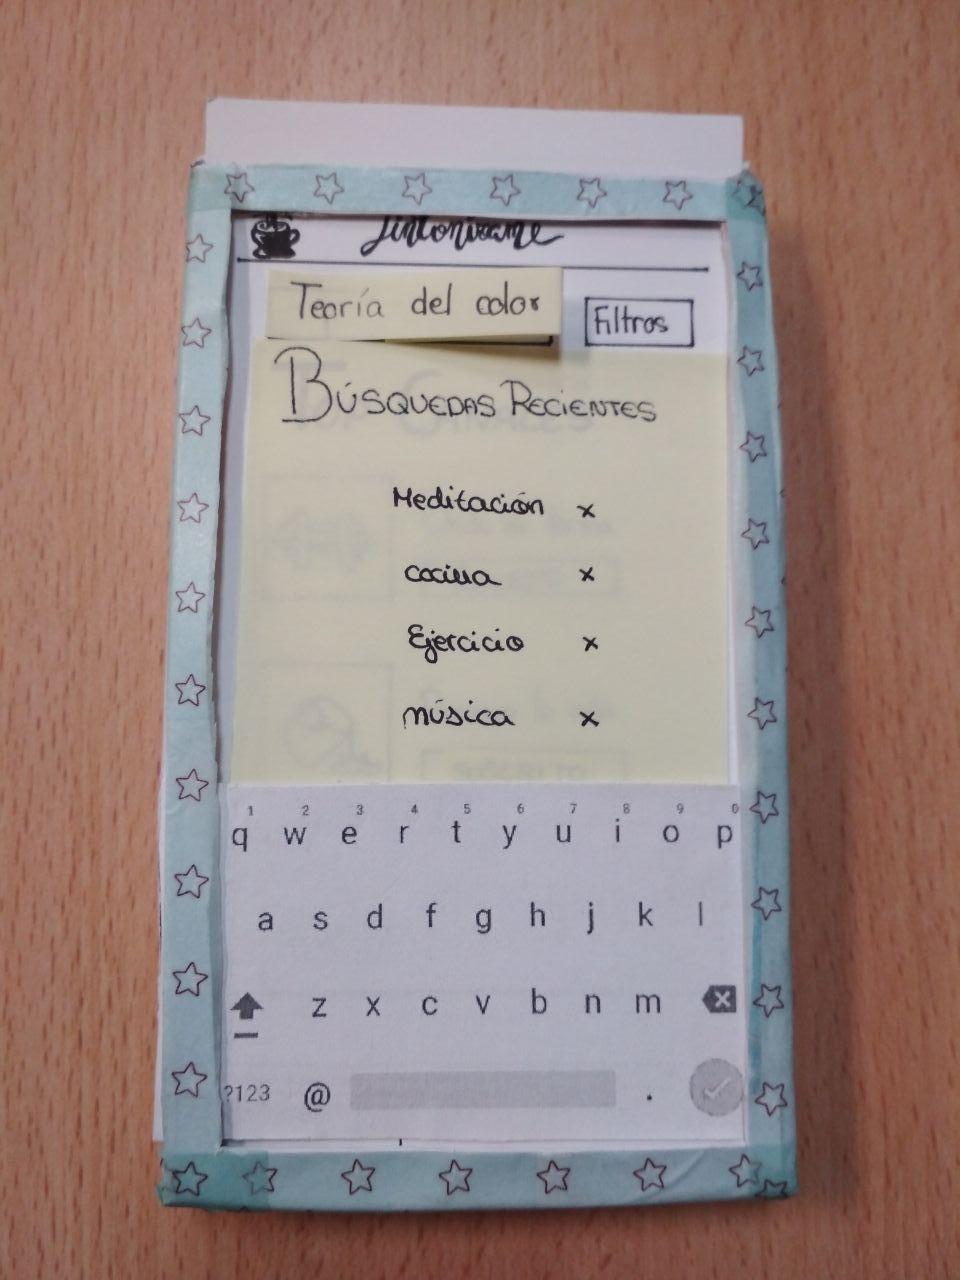 Sintonizame
Teoría del color
Filtros
BÚSQUEDAS RECIENTES
Meditación x
cocina x
Ejercicio x
música x
1 2 3 4 5 6 7 8 9 0
q w e r t y u i o p
a s d f g h j k l
z x c v b n m
?123 @ .